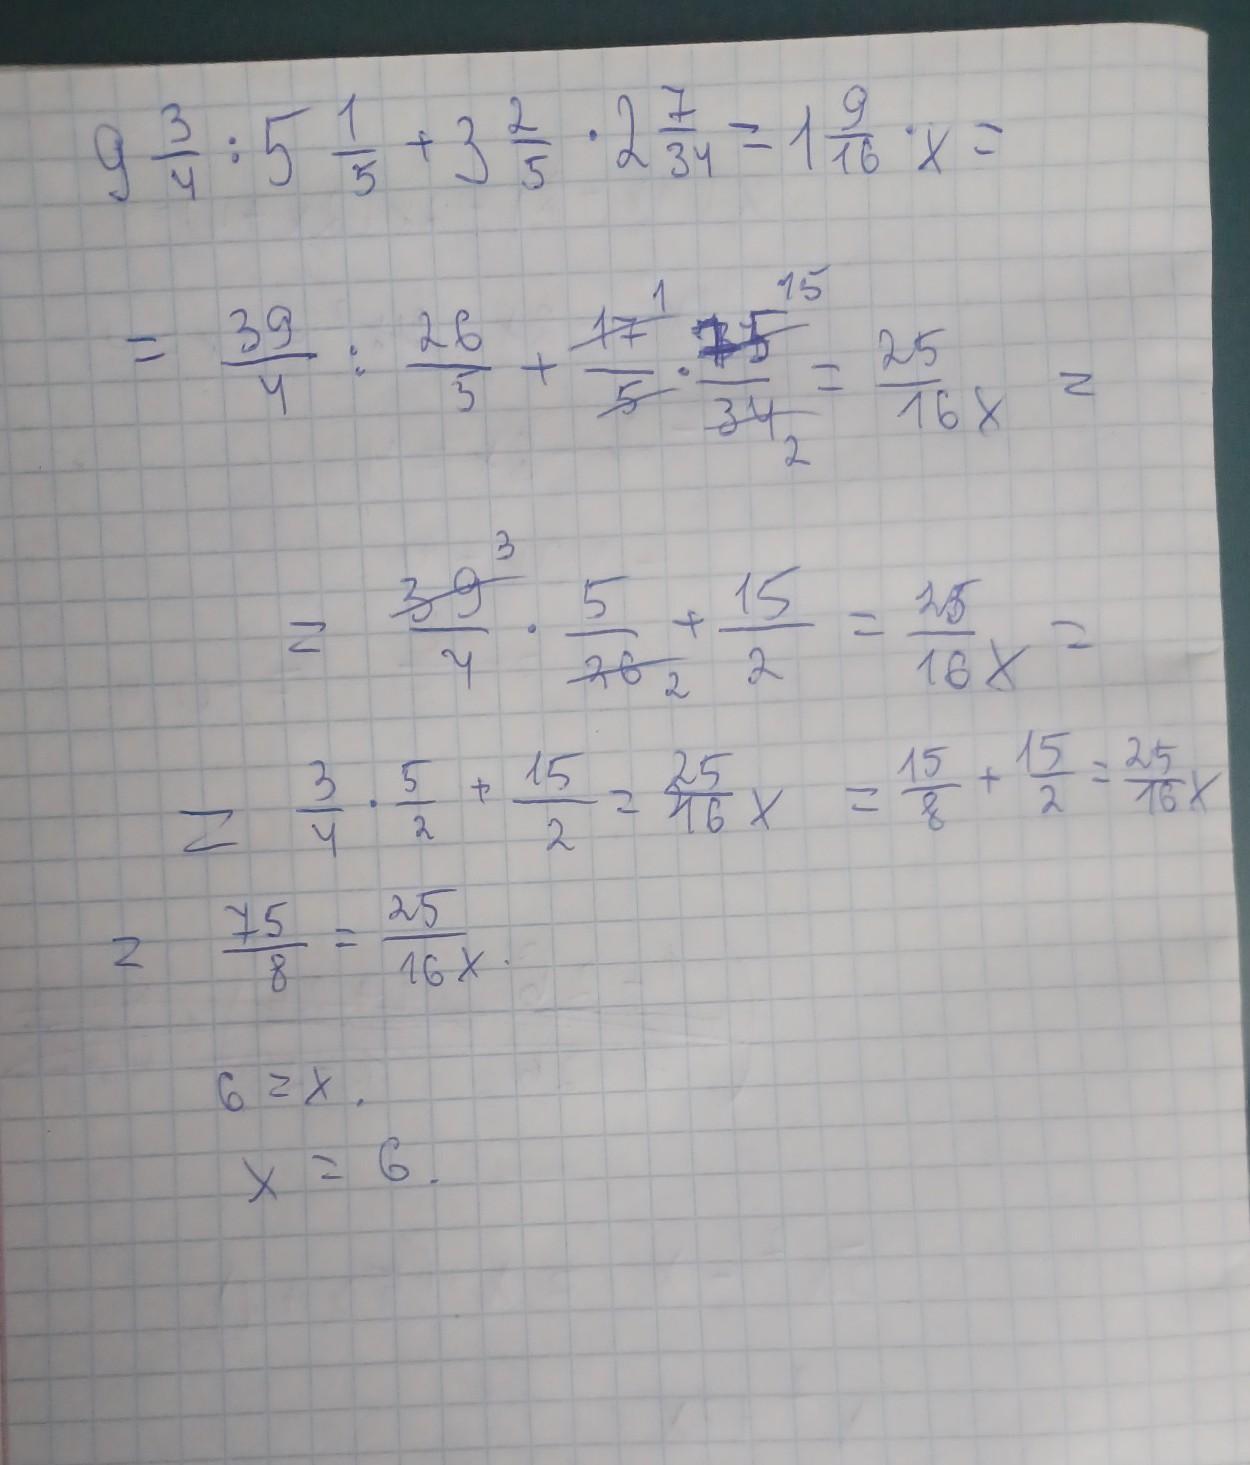 9 3/4 : 5 1/5 + 3 2/5 · 2 7/34 = 1 9/16 · x =
= 39/4 : 26/5 + 17/5 1 · 75/34 15 2 = 25/16 x =
= 39/4 3 · 5/26 2 + 15/2 = 25/16 x =
= 3/4 · 5/2 + 15/2 = 25/16 x = 15/8 + 15/2 = 25/16 x
= 75/8 = 25/16 x.
6 = x.
x = 6.